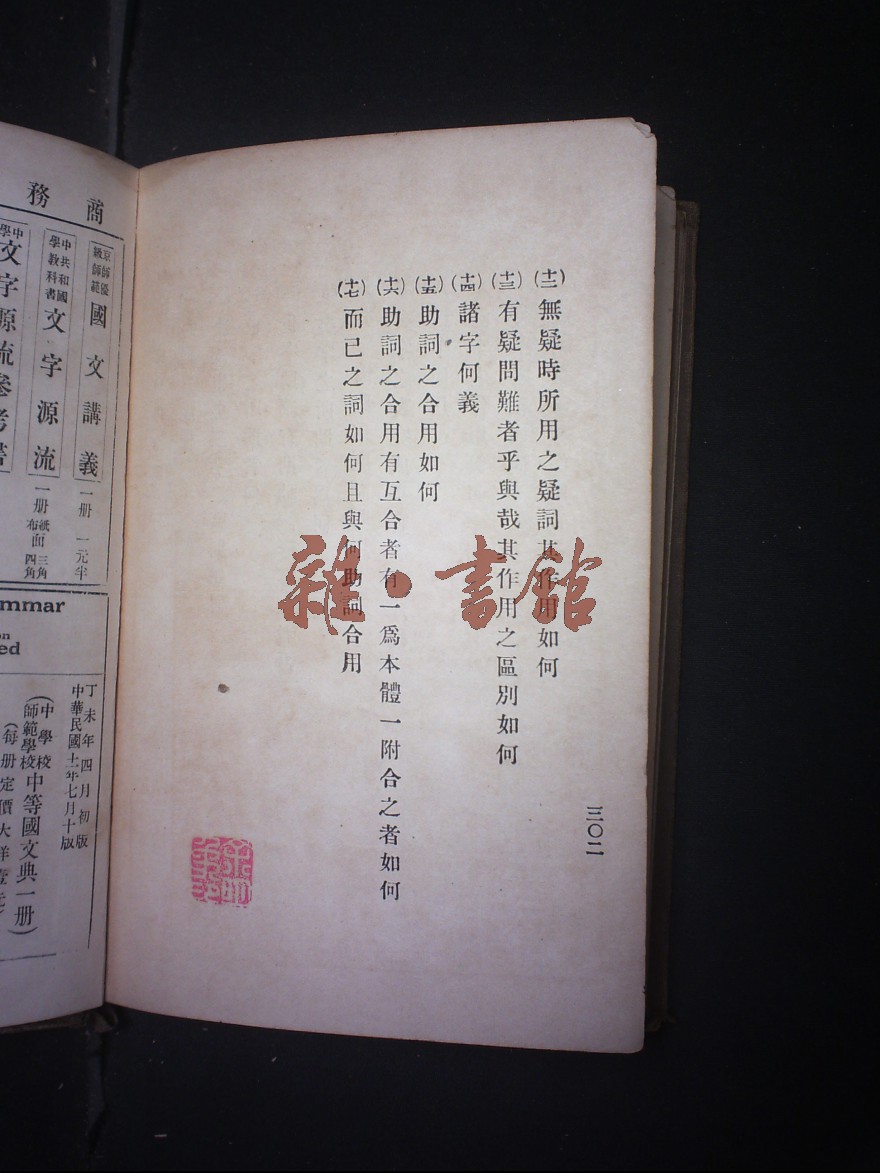 (十二)無疑時所用之疑詞其作用如何
(十三)有疑問難者乎與哉其作用之區別如何
(十四)諸字何義
(十五)助詞之合用如何
(十六)助詞之合用有互合者有一爲本體一附合之者如何
(十七)而已之詞如何且與何助詞合用
三〇二
雜·書館
商務
京師優級師範 國文講義 一册 一元半
中學共和國教科書 文字源流 一册 紙面三角 布面四角
中學文字源流參考書
mmar
on
ed
丁未年四月初版
中華民國十一年七月十版
(中學校師範學校中等國文典一册)
(每册定價大洋壹元)